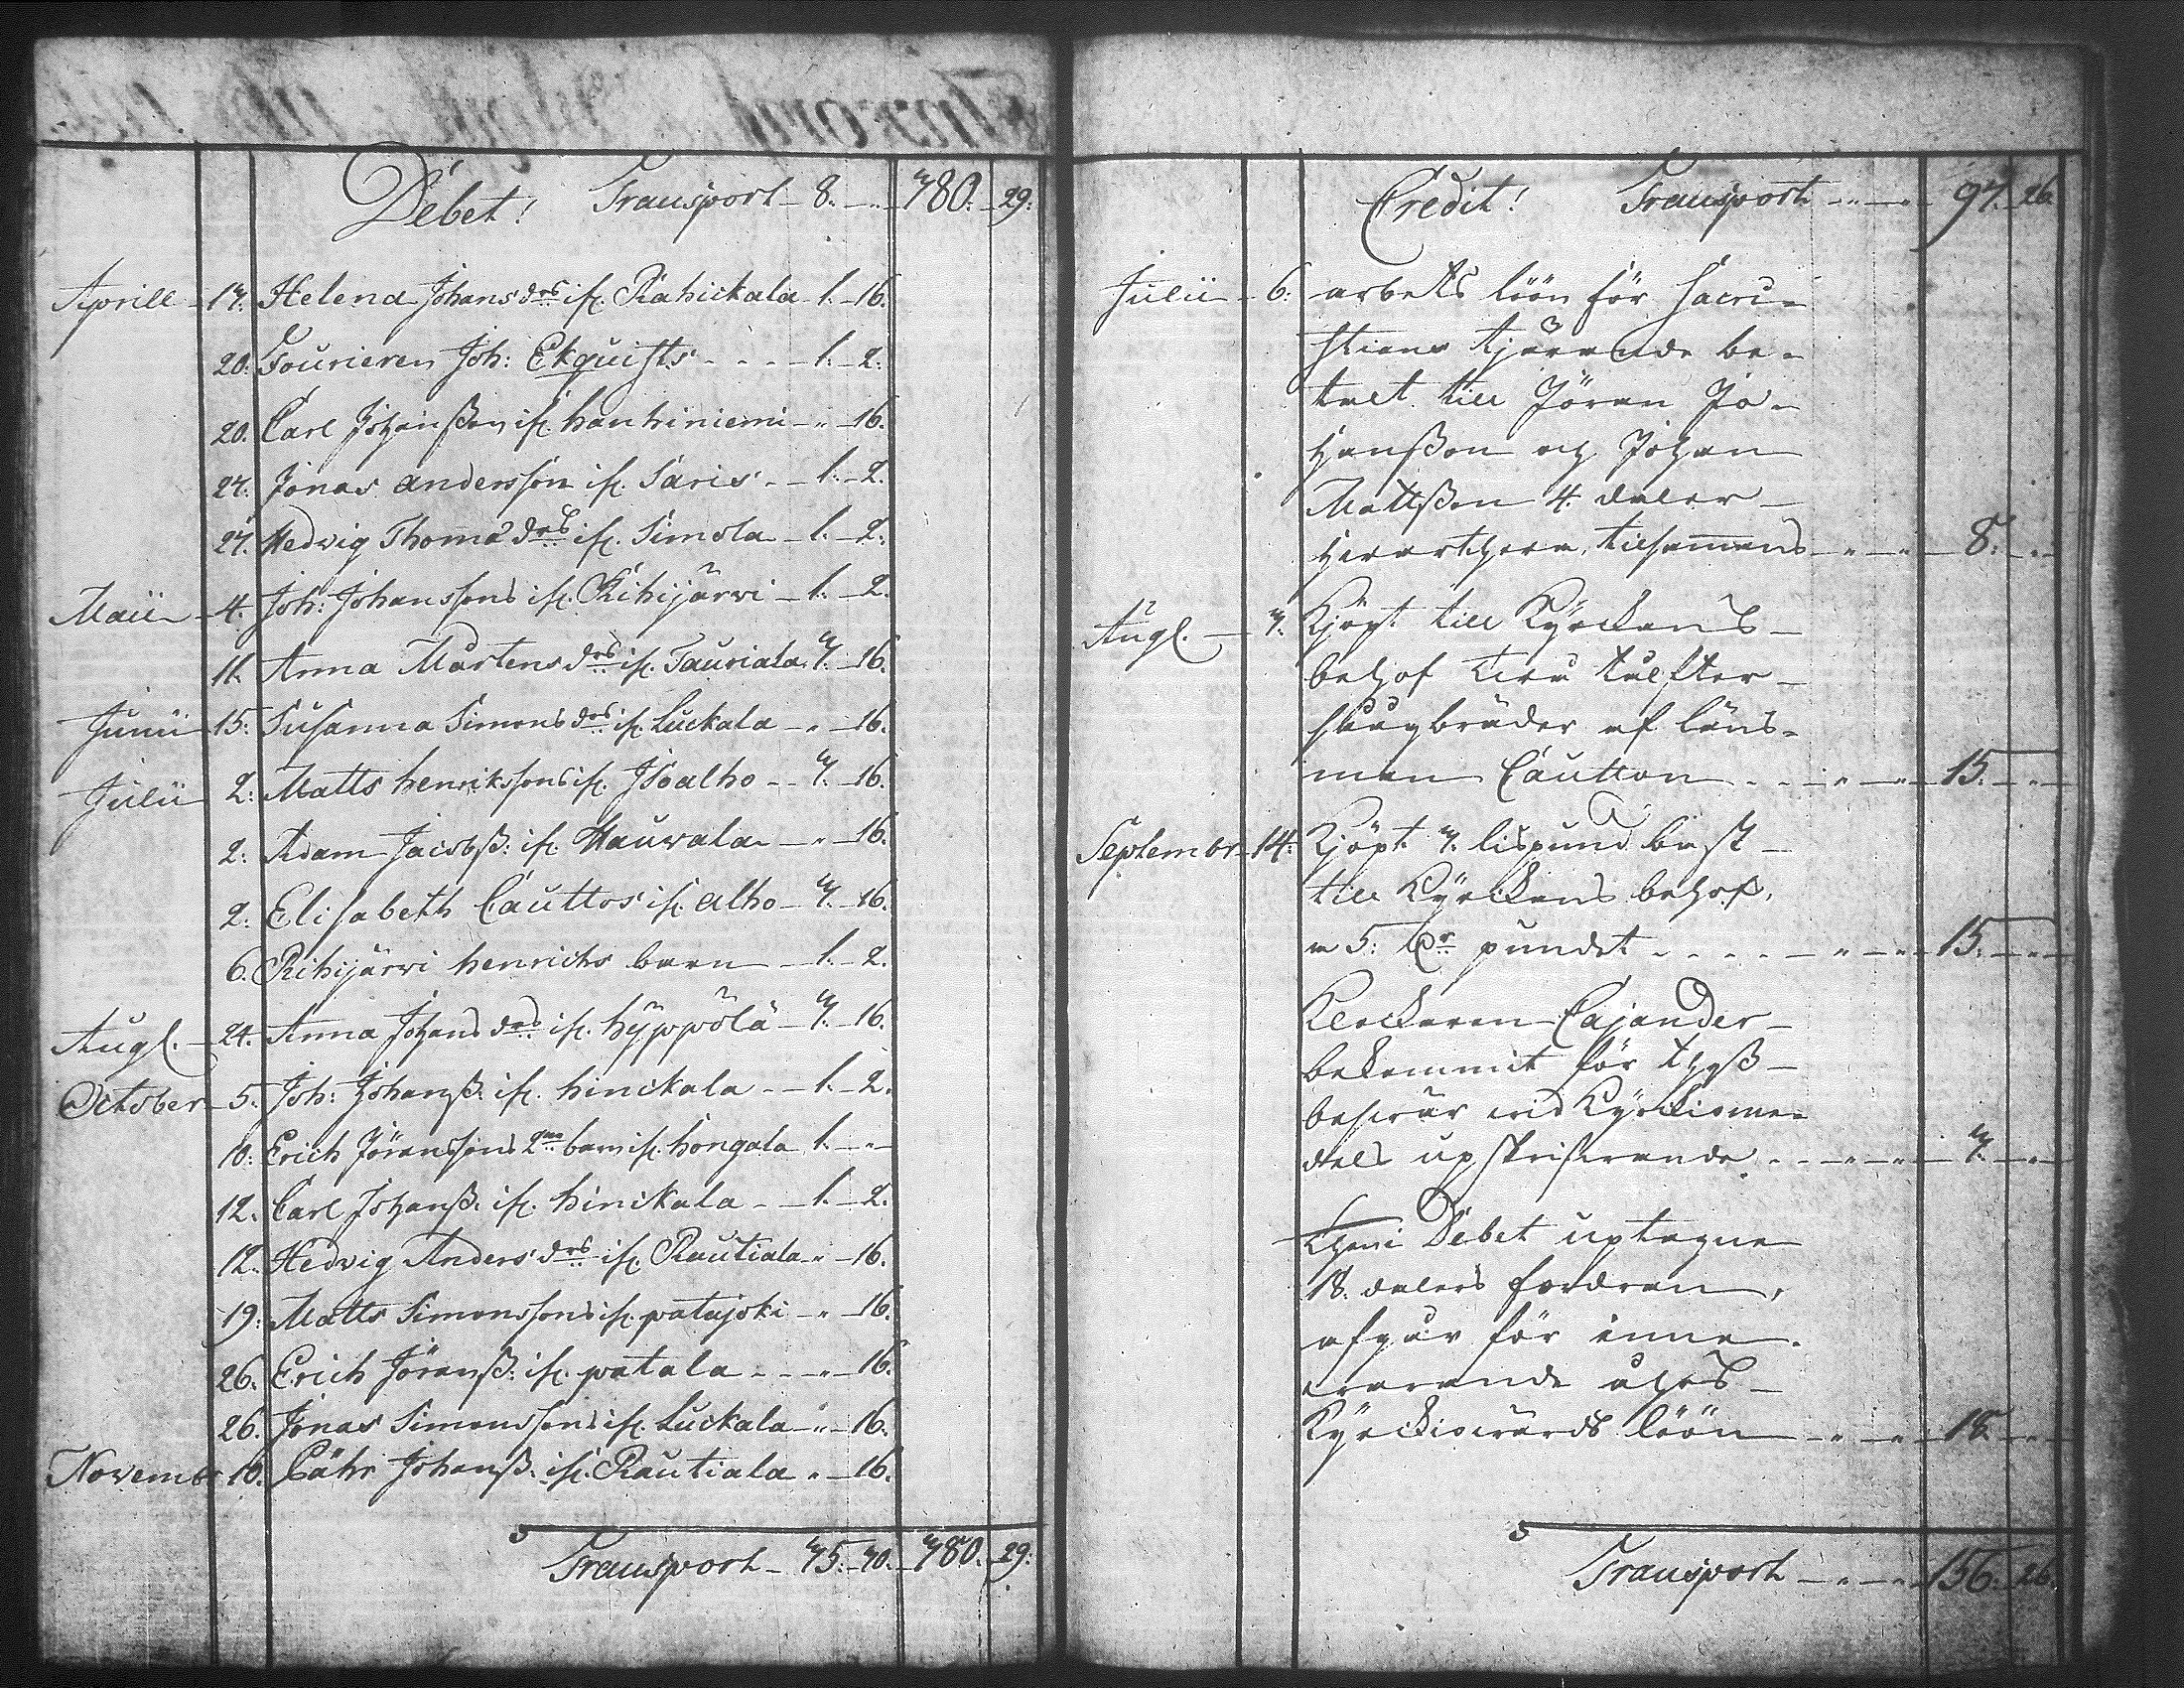 Debet! Transport - 8. - " - 780. - 29.
Aprill - 17. Helena Johans drs if. Rahickala - 1. - 16.
20. Fourieren Joh: Ekquists - - - 1. - 2.
20. Carl Johanßon if. hanhiniemi - " - 16.
27. Jonas andersson if. Saris - - 1. - 2.
27. Hedvig Thoma drs if. Simola - 1. - 2.
Maii - 4. Joh: Johanssons if. Rihijärvi - 1. - 2.
11. Anna Mårtens drs if. Tauriala 7. - 16.
Junii 15. Susanna Simons drs if. Luckala - " - 16.
Julii 2. Matts henrikssons if. Isoalho - - 7. - 16.
2. Adam Jacobß: if. Hauvala - " - 16.
2. Elisabeth Cauttos if. alho - 7. - 16.
6. Rihijärvi henrichs barn - 1. - 2.
Augl. - 24. Anna Johans drs if. hÿppölä - 7. - 16.
October - 5. Joh: Johanß: if. hinckala - - 1. - 2.
10. Erich Jöranssons 2ne barn if. hongala 1. - "
12. Carl Johanß. if. hinckala - - 1. - 2.
12. Hedvig Anders drs if. Rautiala - " - 16.
19. Matts Simonssons if. patajoki - " - 16.
26. Erich Jöranß: if. patala - - - " - 16.
26. Jonas Simonssons if. Luckala - " - 16.
Novembr 10. Påhr Johanß. if. Rautiala " - 16.
Transport - 75. - 70. - 780. - 29.
Credit! Transport - " - " - 97. - 26.
Julii - 6. arbets löön för sacri-
stians tjärande be-
talt till Jöran Jo-
hanßon och Johan
Mattßon 4. daler -
hvarthera, tilsammans - " - " - 8. - "
Augl. - 7. Kjöpt till Kyrckans -
behof tiru tålfter -
såugbräder af läns-
man Cautton - - - " - " - 15. - " -
Septembr - 14. Kjöpt 7. lispund bast -
till Kyrckans behof,
a 5: pundet - - - - - " - " - 15. - "
Klockaren Cajander -
bekommit för thess -
besvär vid Kyrckiome-
dels upskrifvande - - - " - " - 7. - "
Uthi Debet uptagne
18. dalers fordran,
afgår för inne-
varande åhrs -
Kyrckiovärds löön - " - " - 18. - "
Transport - " - " - 156. - 26.